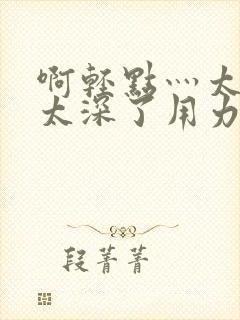 啊轻點灬大
太深了用力
段菁菁